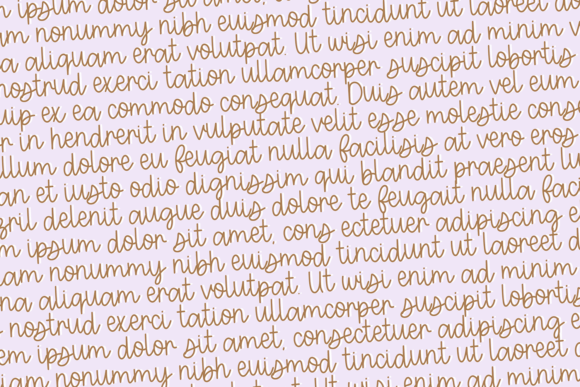 ipsum dolor sit amet, con
am nonummy nibh euismod tincidunt ut laoreet do
a aliquam erat volutpat. Ut wisi enim ad minim v
nostrud exerci tation ullamcorper suscipit lobortis
uip ex ea commodo consequat. Duis autem vel eum
r in hendrerit in vulputate velit esse molestie conse
llum dolore eu feugiat nulla facilisis at vero eros
an et iusto odio dignissim qui blandit praesent lu
zril delenit augue duis dolore te feugait nulla faci
m ipsum dolor sit amet, cons ectetuer adipiscing e
am nonummy nibh euismod tincidunt ut laoreet d
na aliquam erat volutpat. Ut wisi enim ad minim
nostrud exerci tation ullamcorper suscipit lobortis
em ipsum dolor sit amet, consectetuer adipiscing e
iam nonummy nibh euismod tincidunt ut laoreet
erat volutpat. Ut wisi enim ad minim